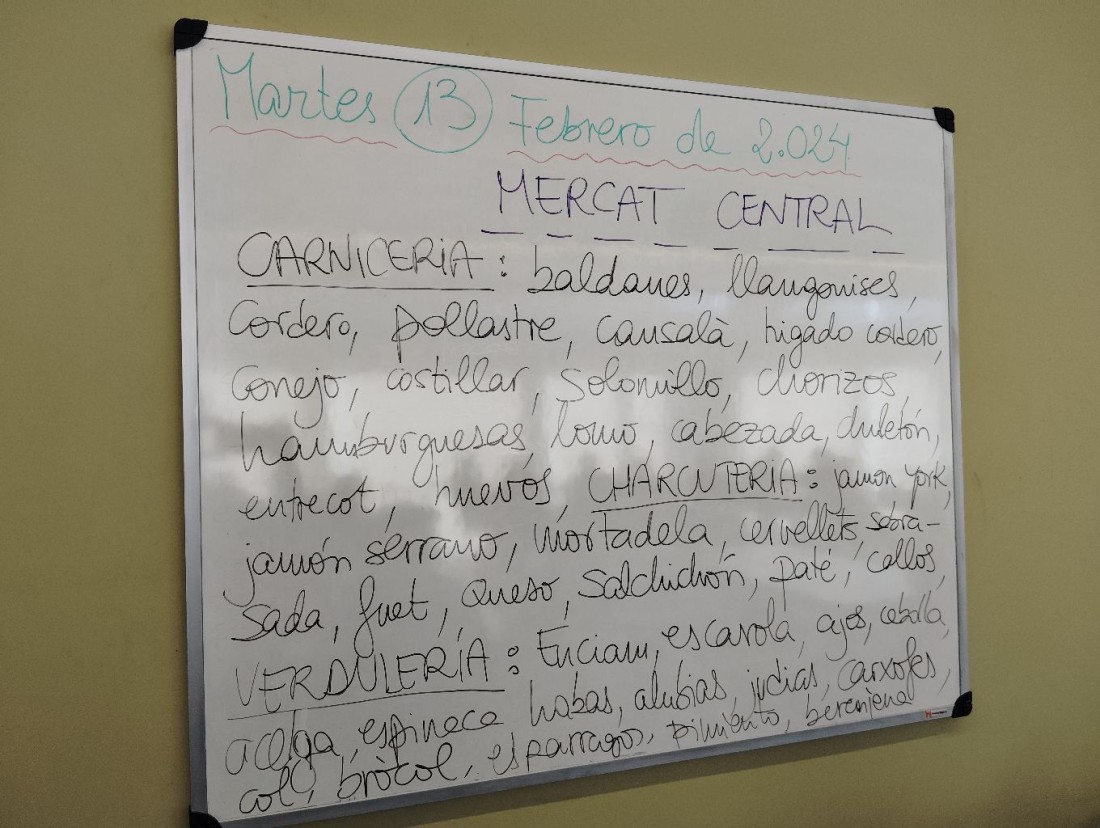 Martes 13 Febrero de 2.024
MERCAT CENTRAL
CARNICERIA: baldanes, llangonises,
Cordero, pollastre, cansalà, higado cordero,
Conejo, costillar, solomillo, chorizos,
hamburguesas, lomo, cabezada, chuletón,
entrecot, huevos, CHARCUTERIA: jamon york,
jamón serrano, mortadela, cervellets, sobra-
sada, fuet, queso, salchichón, paté, callos,
VERDULERÍA: Enciam, escarola, ajos, cebolla,
acelga, espinaca habas, alubias, judias, carxofes,
col, bròcol, esparragos, pimiento, berenjena